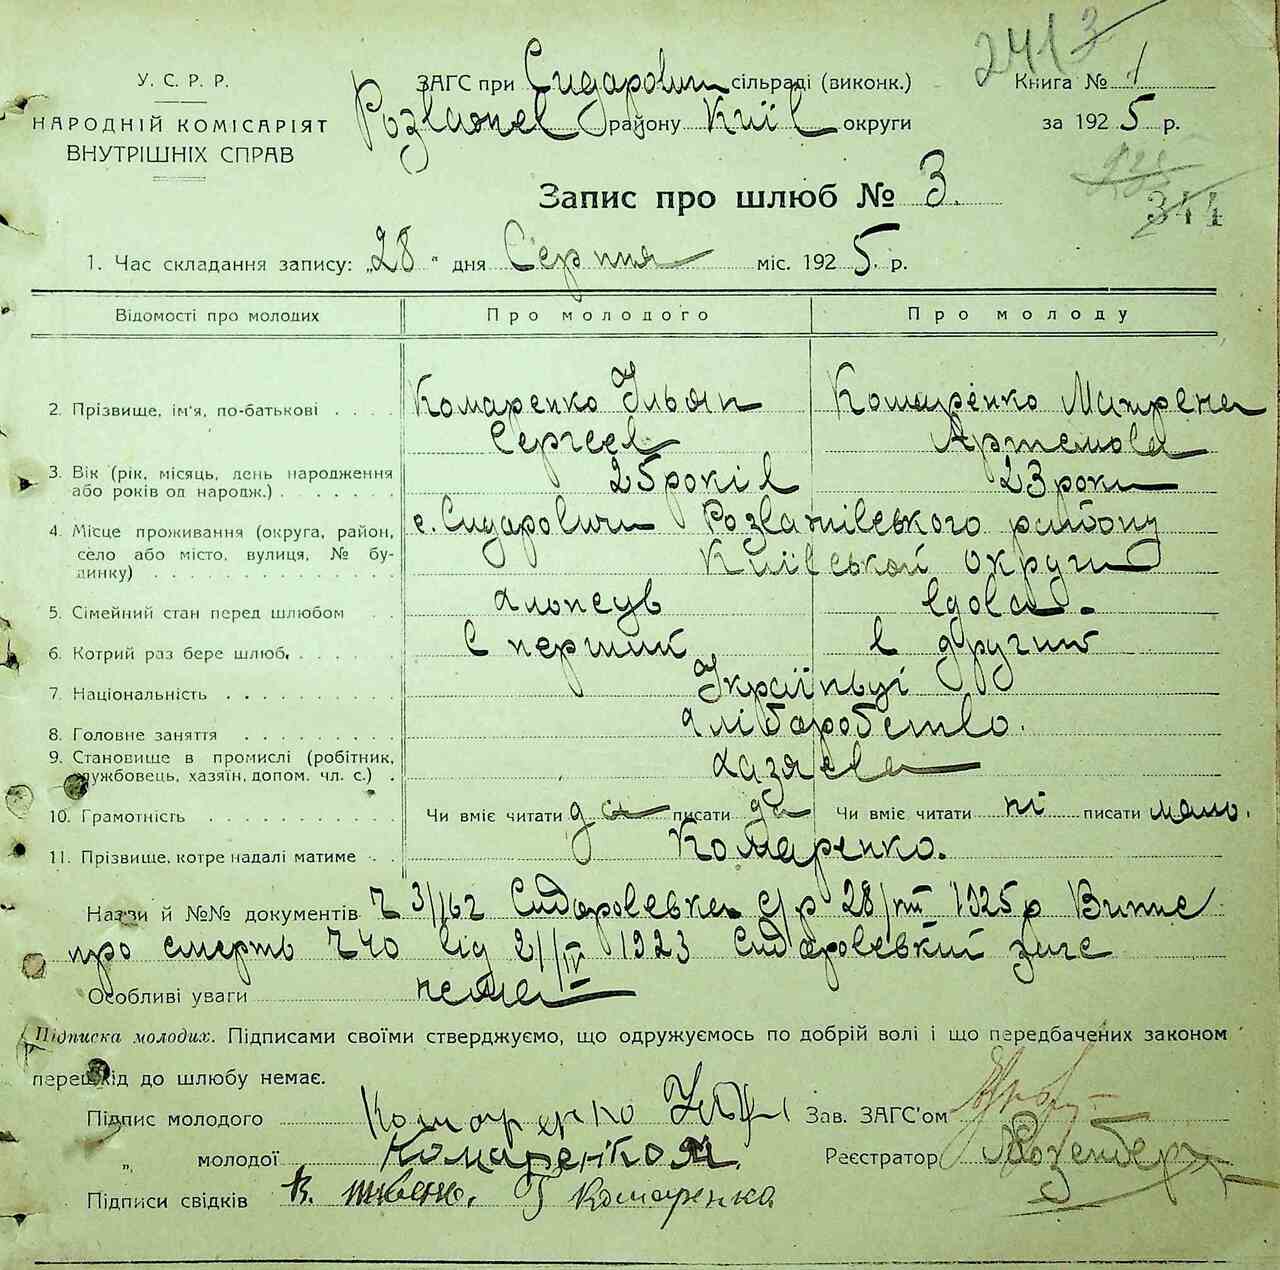 2413
У. С. Р. Р.
НАРОДНІЙ КОМІСАРІЯТ
ВНУТРІШНІХ СПРАВ
ЗАГС при Сидарович сільраді (виконк.)
Розважев району Київ округи
Книга № 1
за 1925 р.
344
Запис про шлюб № 3.
1. Час складання запису: „28" дня Серпня міс. 1925 р.
Відомості про молодих Про молодого Про молоду
2. Прізвище, ім'я, по-батькові Комаренко Ільян Сергеев Комаренко Матрена Артемова
3. Вік (рік, місяць, день народження або років од народж.) 25 років 23 роки
4. Місце проживання (округа, район, село або місто, вулиця, № будинку) с. Сидаровичи Розважівського району Київськой округи
5. Сімейний стан перед шлюбом вдова.
6. Котрий раз бере шлюб в перший в другий
7. Національність Українці
8. Головне заняття хліборобство.
9. Становище в промислі (робітник, службовець, хазяїн, допом. чл. с.)
10. Грамотність Чи вміє читати да писати да Чи вміє читати ні писати мало.
11. Прізвище, котре надалі матиме Комаренко.
Назви й №№ документів Ч 3/162 с/р 28/VIII 1925 р Випис
про смерть Ч 40 від 21/IV 1923 загс
Особливі уваги нема
Підписка молодих. Підписами своїми стверджуємо, що одружуємось по добрій волі і що передбачених законом
перешкід до шлюбу немає.
Підпис молодого Комаренко Зав. ЗАГС'ом
„ молодої Комаренко М. Реєстратор Розенберг
Підписи свідків Г Комаренко